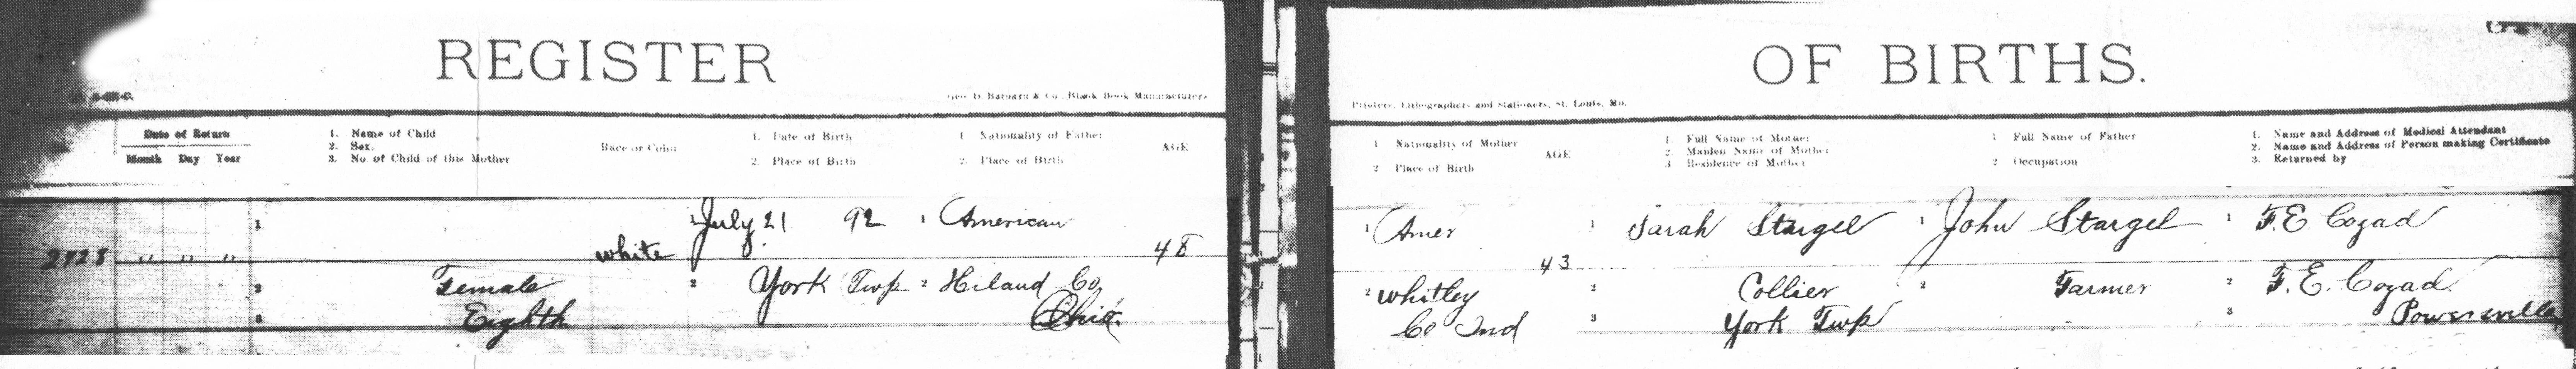 REGISTER
OF BIRTHS.
Geo. D. Barnard & Co. Blank Book Manufacturers
Printers, Lithographers and Stationers, St. Louis, Mo.
Date of Return
Month Day Year
1. Name of Child
2. Sex.
3. No of Child of this Mother
Race or Color
1. Date of Birth
2. Place of Birth
1 Nationality of Father
2. Place of Birth
AGE
1 Nationality of Mother
2 Place of Birth
AGE
1. Full Name of Mother
2. Maiden Name of Mother
3 Residence of Mother
1 Full Name of Father
2 Occupation
1. Name and Address of Medical Attendant
2. Name and Address of Person making Certificate
3. Returned by
1 1 July 21 92 1 American
2828 " " " white 48
2 Female 2 York Twp 2 Hiland Co
3 Eighth Ohio.
1 Amer 1 Sarah Stargel 1 John Stargel 1 F.E Cozad
43
2 Whitley 2 Collier 2 Farmer 2 F.E. Cozad
Co Ind 3 York Twp 3 Powersville